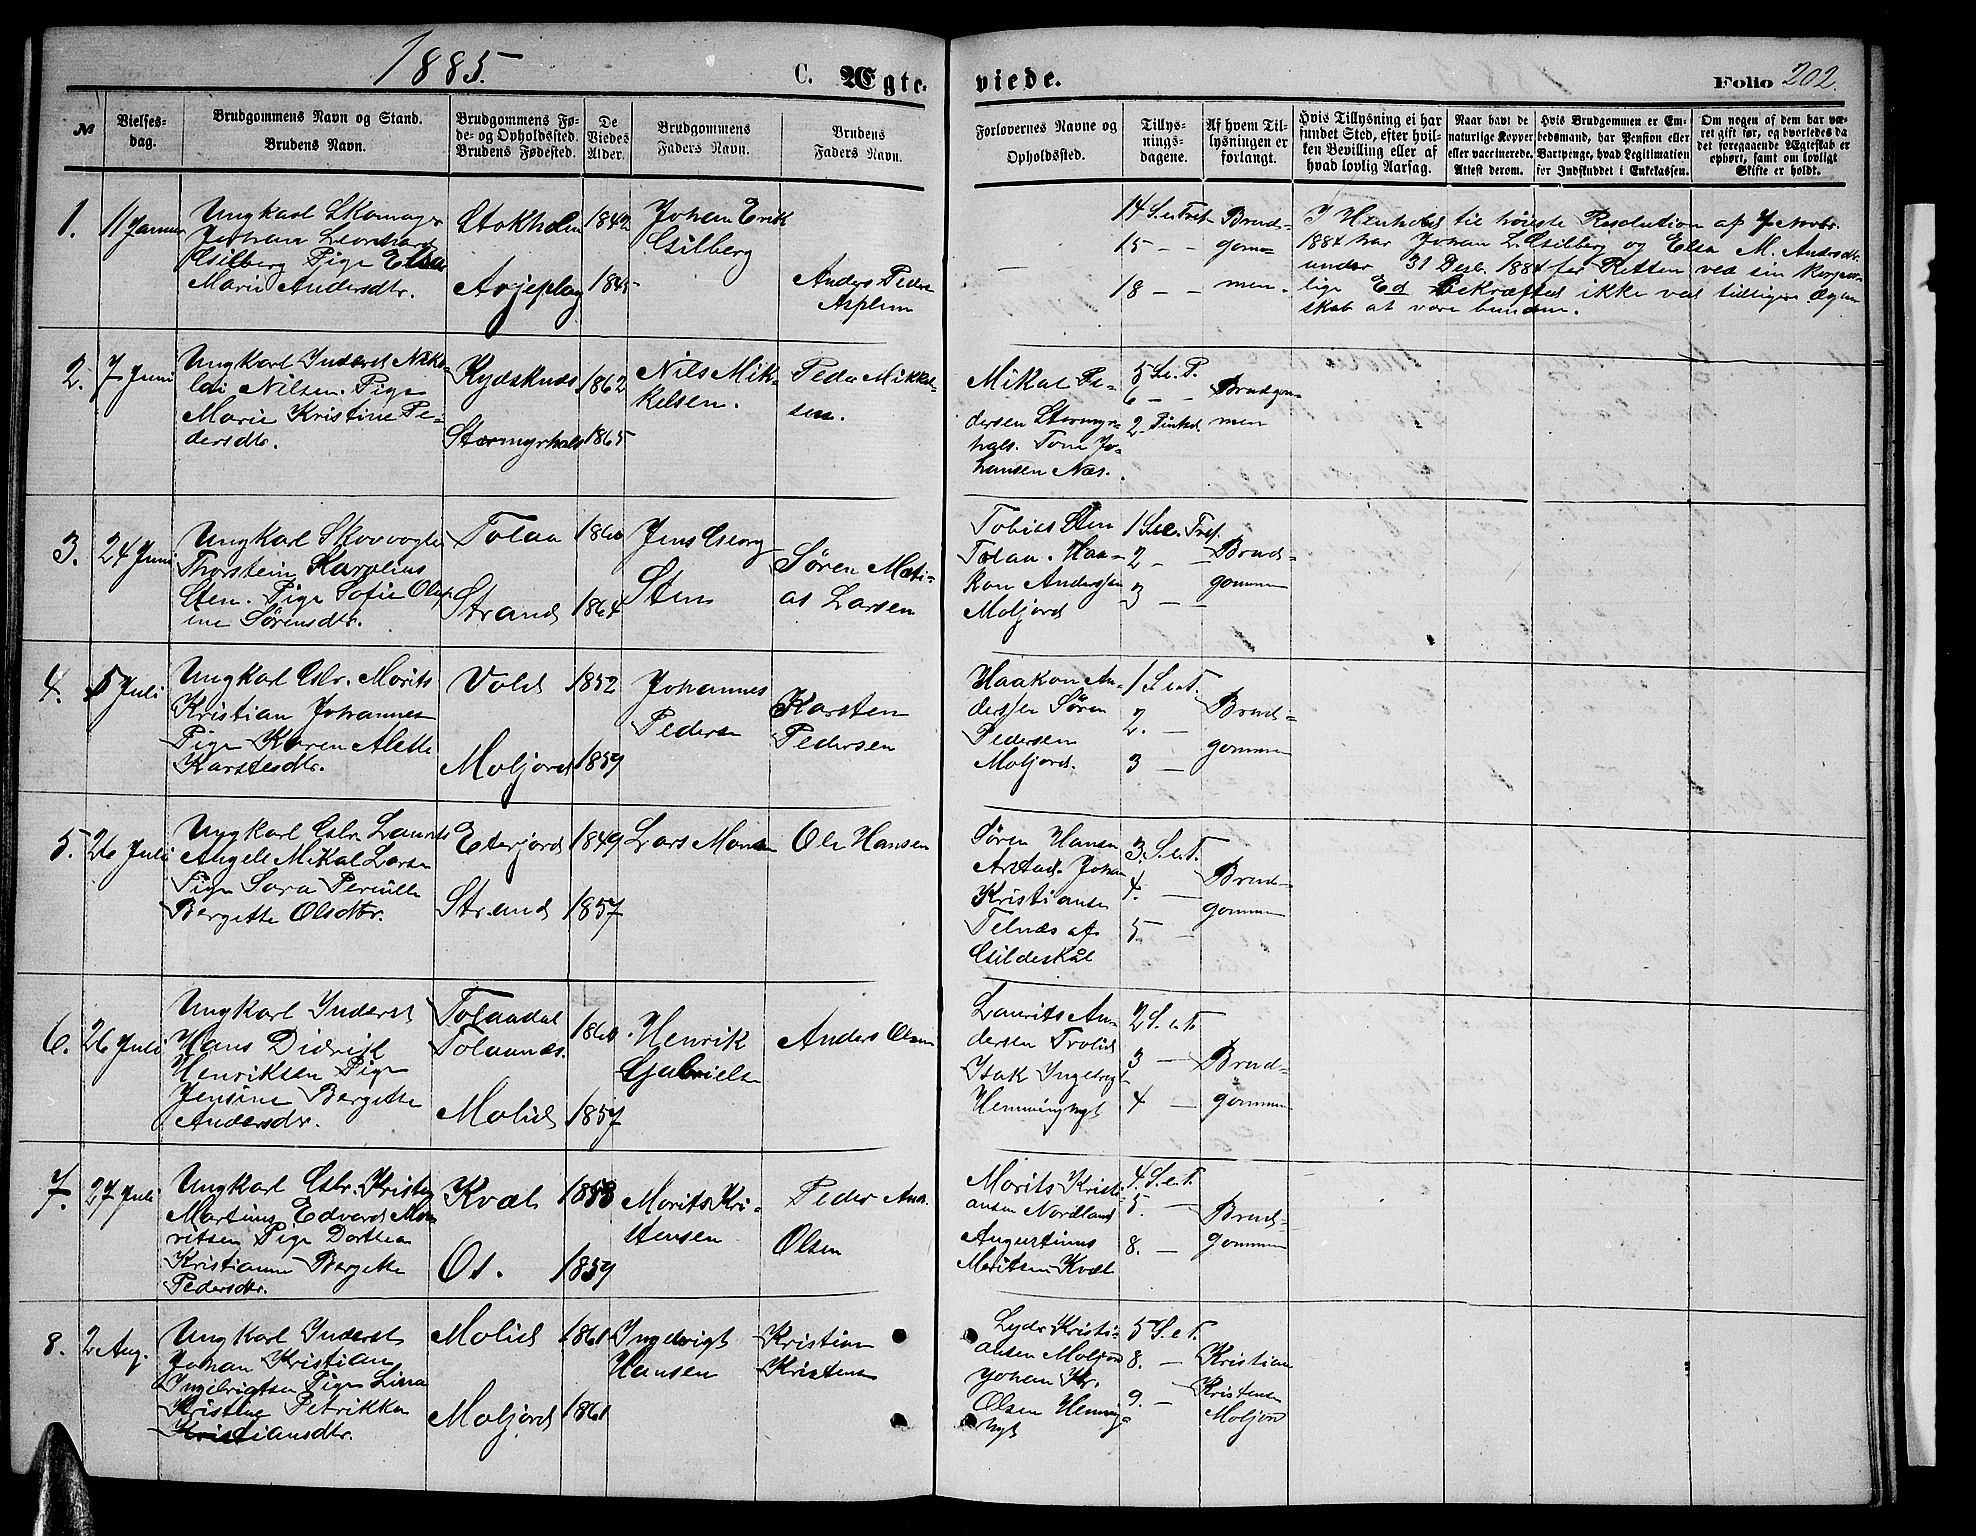 1885.
C. Ægte-
viede.
Folio 202.
№
Vielses-
dag.
Brudgommens Navn og Stand.
Brudens Navn.
Brudgommens Fø-
de- og Opholdssted.
Brudens Fødested.
De
Viedes
Alder.
Brudgommens
Faders Navn.
Brudens
Faders Navn.
Forlovernes Navne og
Opholdssted.
Tillys-
nings-
dagene.
Af hvem Til-
lysningen er
forlangt.
Hvis Tillysning ei har
fundet Sted, efter hvil-
ken Bevilling eller af
hvad lovlig Aarsag.
Naar havt de
naturlige Kopper
eller vaccinerede.
Attest derom.
Hvis Brudgommen er Em-
bedsmand, har Pension eller
Vartpenge, hvad Legitimation
for Indskuddet i Enkekassen.
Om nogen af dem har væ-
ret gift før, og hvorledes da
det foregaaende Ægteskab er
ophørt, samt om lovligt
Skifte er holdt.
1.
11 Januar
Ungkarl Skomager
Johan Leonhard
Gilberg Pige Elsa
Marie Andersdtr.
Stokholm
Arjeplog
1842
1845
Johan Erik
Gilberg
Anders Peders
Asplun
14 S. e. Tref.
15 - -
18 - -
Brud-
gom-
men-
I Henhold til høieste Resolution af 7 Novbr.
1884 har Johan L. Gilberg og Elsa M. Andersdtr.
under 31 Desb. 1884 for Retten ved sin korpor-
lige Ed bekræftet ikke ved tidligere Ægte-
skab at være bunden.
2.
7 Juni
Ungkarl Inderst Niko-
lai Nilsen. Pige
Marie Kristine Pe-
dersdtr.
Kydsknæs
Stormyrhals
1862
1865
Nils Mik-
kelsen.
Peder Mikkel-
sen.
Mikal Pe-
dersen Stormyr-
hals. Tone Jo-
hansen Næs.
5 S. e. P.
6 - -
2 Pintsd.
Brudgom-
men
3.
24 Juni
Ungkarl Skovvogter
Thorstein Karolius
Sten. Pige Sofie Olef-
ine Sørensdtr.
Tolaa
Strand
1860
1864
Jens Georg
Sten
Søren Mati-
as Larsen
Tobias Sten
Tolaa. Haa-
kon Anderssen
Moljord
1 S. e. Tref.
2 - -
3 - -
Brud-
gommen
4.
5 Juli
Ungkarl Gbr. Morits
Kristian Johannes
Pige Karen Alette
Karstesdtr.
Vold
Moljord
1852
1859
Johannes
Pedersen
Karsten
Pedersen
Haakon An-
derssen Søren
Pedersen
Moljord.
1 S. e. T.
2. -
3 -
Brud-
gommen
5.
26 Juli
Ungkarl Gbr. Laurits
Angel Mikal Larsen
Pige Sara Pernille
Bergette Olsdtr.
Eterjord
Strand
1849
1857
Lars Monsen
Ole Hansen
Søren Hansen
Arstad. Johan
Kristiansen
Telnæs af
Gildeskål
3. S. e. T.
4. -
5. -
Brud-
gommen
6.
26 Juli
Ungkarl Inderst
Hans Didrik
Henriksen Pige
Jensine Bergette
Andersdtr.
Tolaadal
Tolaanes.
Molid
1860
1857
Henrik
Gabrielsen
Anders Olsen
Laurits An-
dersen Trolid
Isak Ingebrigt-
Hemmingnyt
2 S. e. T.
3 -
4 -
Brud-
gommen
7.
27 Juli
Ungkarl Gbr. Kristen
Martinus Edvard Mo-
ritsen Pige Dorthea
Kristianne Bergette
Pedersdtr.
Kvæl
Os.
1858
1859
Morits Kri-
stensen
Peder And.
Olsen
Morits Kristi
ansen Nordland
Augustinus
Moritsen Kvæl
4. S. e. T.
5. -
8. -
Brud-
gommen
8.
2 Aug.
Ungkarl Inderst
Johan Kristian
Ingebrigtsen Pige Lina
Kristine Petrikke
Kristiansdtr.
Molid
Moljord
1861
1861
Ingebrigt
Hansen
Kristian
Kristensen
Lyder Kristi-
ansen Moljord
Johan Kr.
Olsen Hemming
nyt
5 S. e. T.
8. -
9. -
Kristian
Kristensen
Moljord